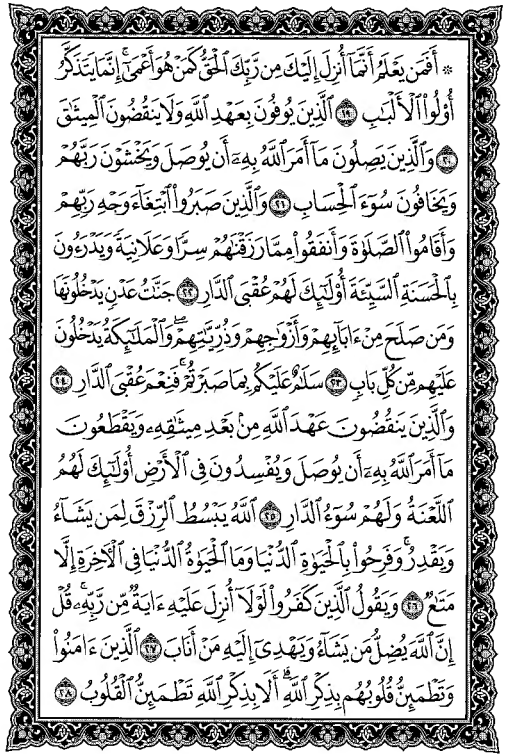 ۞ أَفَمَن يَعْلَمُ أَنَّمَآ أُنزِلَ إِلَيْكَ مِن رَّبِّكَ ٱلْحَقُّ كَمَنْ هُوَ أَعْمَىٰٓ ۚ إِنَّمَا يَتَذَكَّرُ
أُو۟لُوا۟ ٱلْأَلْبَٰبِ ١٩ ٱلَّذِينَ يُوفُونَ بِعَهْدِ ٱللَّهِ وَلَا يَنقُضُونَ ٱلْمِيثَٰقَ
٢٠ وَٱلَّذِينَ يَصِلُونَ مَآ أَمَرَ ٱللَّهُ بِهِۦٓ أَن يُوصَلَ وَيَخْشَوْنَ رَبَّهُمْ
وَيَخَافُونَ سُوٓءَ ٱلْحِسَابِ ٢١ وَٱلَّذِينَ صَبَرُوا۟ ٱبْتِغَآءَ وَجْهِ رَبِّهِمْ
وَأَقَامُوا۟ ٱلصَّلَوٰةَ وَأَنفَقُوا۟ مِمَّا رَزَقْنَٰهُمْ سِرًّا وَعَلَانِيَةً وَيَدْرَءُونَ
بِٱلْحَسَنَةِ ٱلسَّيِّئَةَ أُو۟لَٰٓئِكَ لَهُمْ عُقْبَى ٱلدَّارِ ٢٢ جَنَّٰتُ عَدْنٍ يَدْخُلُونَهَا
وَمَن صَلَحَ مِنْ ءَابَآئِهِمْ وَأَزْوَٰجِهِمْ وَذُرِّيَّٰتِهِمْ ۖ وَٱلْمَلَٰٓئِكَةُ يَدْخُلُونَ
عَلَيْهِم مِّن كُلِّ بَابٍ ٢٣ سَلَٰمٌ عَلَيْكُم بِمَا صَبَرْتُمْ ۚ فَنِعْمَ عُقْبَى ٱلدَّارِ ٢٤
وَٱلَّذِينَ يَنقُضُونَ عَهْدَ ٱللَّهِ مِنۢ بَعْدِ مِيثَٰقِهِۦ وَيَقْطَعُونَ
مَآ أَمَرَ ٱللَّهُ بِهِۦٓ أَن يُوصَلَ وَيُفْسِدُونَ فِى ٱلْأَرْضِ أُو۟لَٰٓئِكَ لَهُمُ
ٱللَّعْنَةُ وَلَهُمْ سُوٓءُ ٱلدَّارِ ٢٥ ٱللَّهُ يَبْسُطُ ٱلرِّزْقَ لِمَن يَشَآءُ
وَيَقْدِرُ ۚ وَفَرِحُوا۟ بِٱلْحَيَوٰةِ ٱلدُّنْيَا وَمَا ٱلْحَيَوٰةُ ٱلدُّنْيَا فِى ٱلْءَاخِرَةِ إِلَّا
مَتَٰعٌ ٢٦ وَيَقُولُ ٱلَّذِينَ كَفَرُوا۟ لَوْلَآ أُنزِلَ عَلَيْهِ ءَايَةٌ مِّن رَّبِّهِۦ ۗ قُلْ
إِنَّ ٱللَّهَ يُضِلُّ مَن يَشَآءُ وَيَهْدِىٓ إِلَيْهِ مَنْ أَنَابَ ٢٧ ٱلَّذِينَ ءَامَنُوا۟
وَتَطْمَئِنُّ قُلُوبُهُم بِذِكْرِ ٱللَّهِ ۗ أَلَا بِذِكْرِ ٱللَّهِ تَطْمَئِنُّ ٱلْقُلُوبُ ٢٨